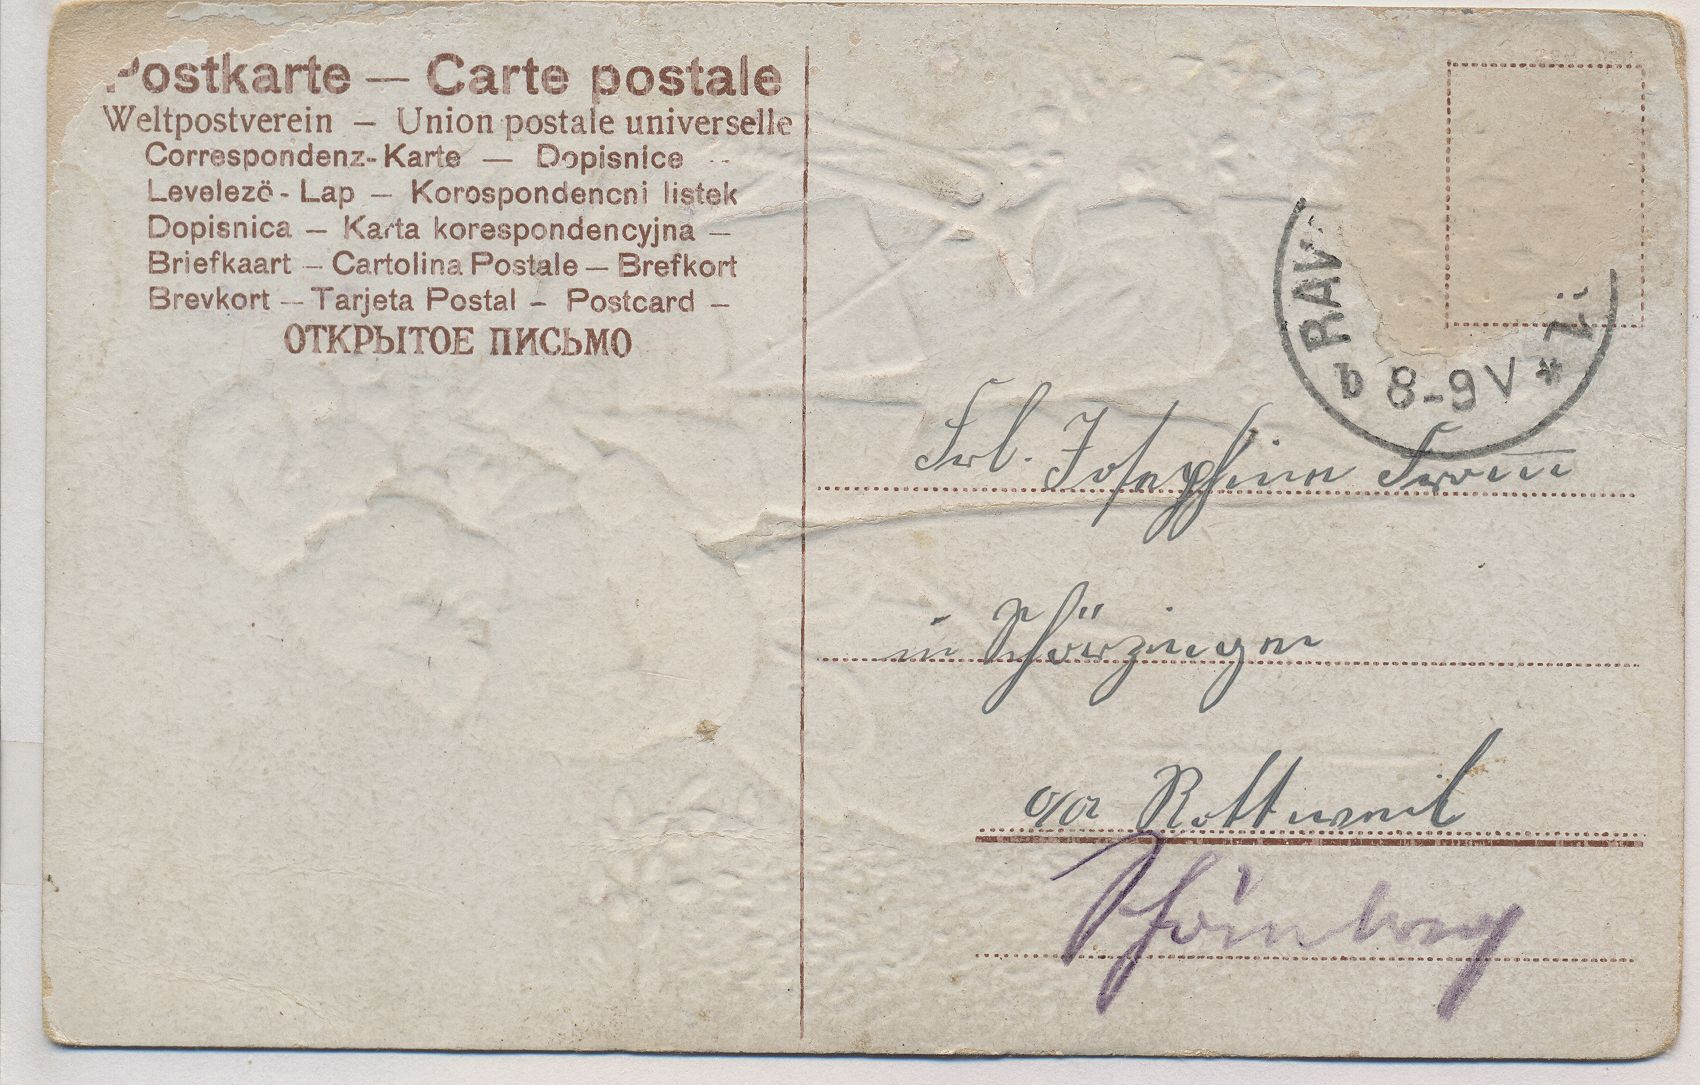 Postkarte — Carte postale
Weltpostverein — Union postale universelle
Correspondenz-Karte — Dopisnice --
Levelező - Lap — Korospondencni listek
Dopisnica — Karta korespondencyjna —
Briefkaart — Cartolina Postale — Brefkort
Brevkort — Tarjeta Postal — Postcard —
ОТКРЫТОЕ ПИСЬМО
RAV
b 8-9 V *
Frl. Josephine
in Schörzingen
o/a Rottweil
Schömberg